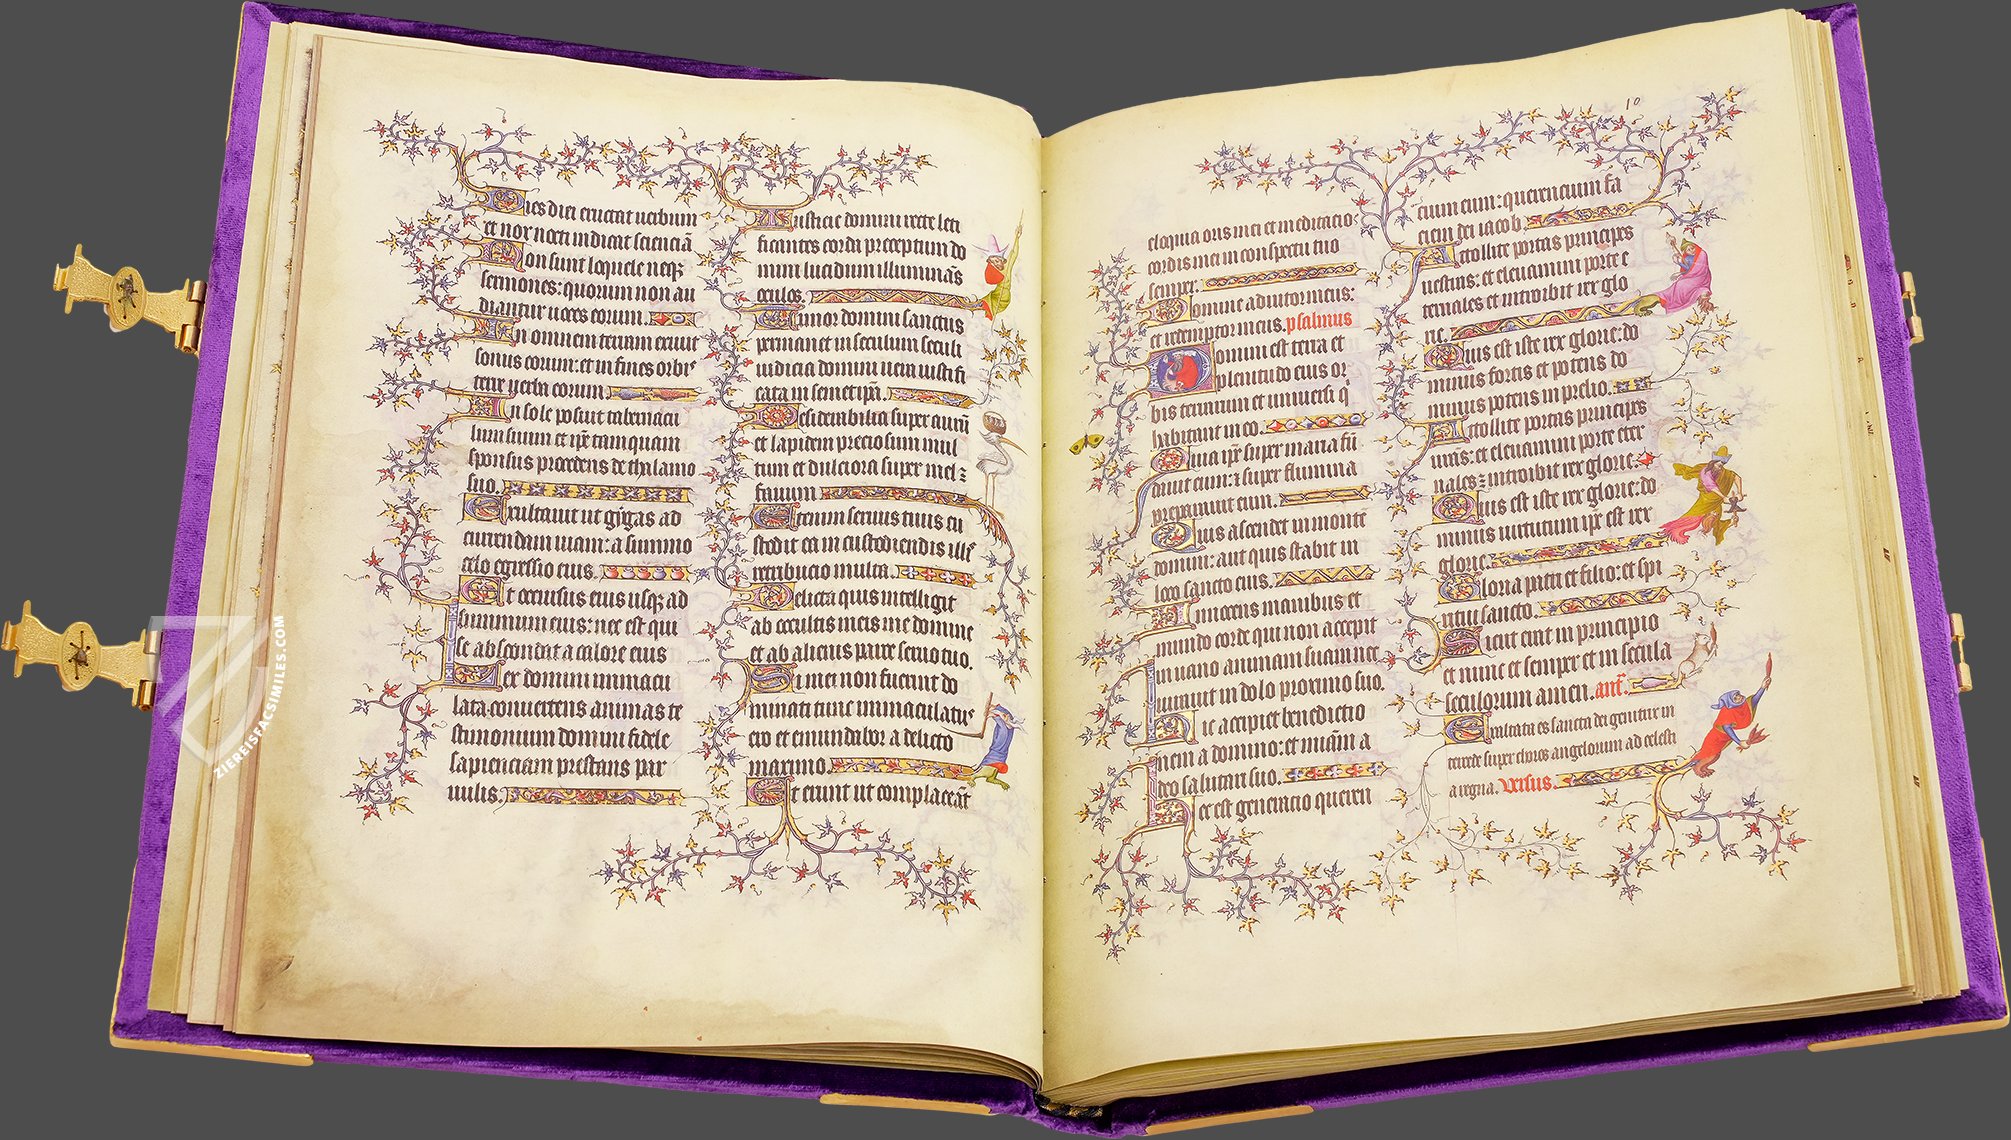 Dies diei eructat uerbum
et nox nocti indicat scienciā
Non sunt loquele neq3
sermones: quorum non au
diantur uoces eorum.
In omnem terram exiuit
sonus eorum: et in fines orbis
terre uerba eorum.
In sole posuit tabernacu
lum suum et ip̄e tamquam
sponsus procedens de thalamo
suo.
Exultauit ut gygas ad
currendam uiam: a summo
celo egressio eius.
Et occursus eius usq3 ad
summum eius: nec est qui
se abscondat a calore eius
Lex domini immacu
lata conuertens animas te
stimonium domini fidele
sapienciam prestans par
uulis.
Iusticie domini recte leti
ficantes corda preceptum do
mini lucidum illuminās
oculos.
Timor domini sanctus
permanet in seculum seculi
iudicia domini uera iustifi
cata in semetip̄a.
Desiderabilia super aurū
et lapidem preciosum mul
tum et dulciora super mel et
fauum
Etenim seruus tuus cu
stodit ea in custodiendis illis
retribucio multa.
Delicta quis intelligit
ab occultis meis me domine
et ab alienis parce seruo tuo.
Si mei non fuerint do
minati tunc immaculatus
ero et emundabor a delicto
maximo.
Et erunt ut complaceāt
10
eloquia oris mei et meditacio
cordis mei in conspectu tuo
semper.
Domine adiutor meus:
et redemptor meus. psalmus
Domini est terra et
plenitudo eius or
bis terrarum et uniuersi q̄
habitant in eo.
Quia ip̄e super maria fū
dauit eum: et super flumina
preparauit eum.
Quis ascendet in montē
domini: aut quis stabit in
loco sancto eius.
Innocens manibus et
mundo corde qui non accepit
in uano animam suam nec
iurauit in dolo proximo suo.
Hic accipiet benedictio
nem a domino: et mīam a
deo salutari suo.
Hec est generacio queren
cium eum: querencium fa
ciem dei iacob.
Attollite portas principes
uestras: et eleuamini porte e
ternales et introibit rex glo
rie.
Quis est iste rex glorie: do
minus fortis et potens do
minus potens in prelio.
Attollite portas principes
uras: et eleuamini porte eter
nales et introibit rex glorie.
Quis est iste rex glorie: do
minus uirtutum ip̄e est rex
glorie.
Gloria patri et filio: et spi
ritui sancto.
Sicut erat in principio
et nunc et semper et in secula
seculorum amen. ant̄.
Exaltata es sancta dei genitrix
super choros angelorum ad celesti
a regna. Versus.
ZIEREISFACSIMILES.COM